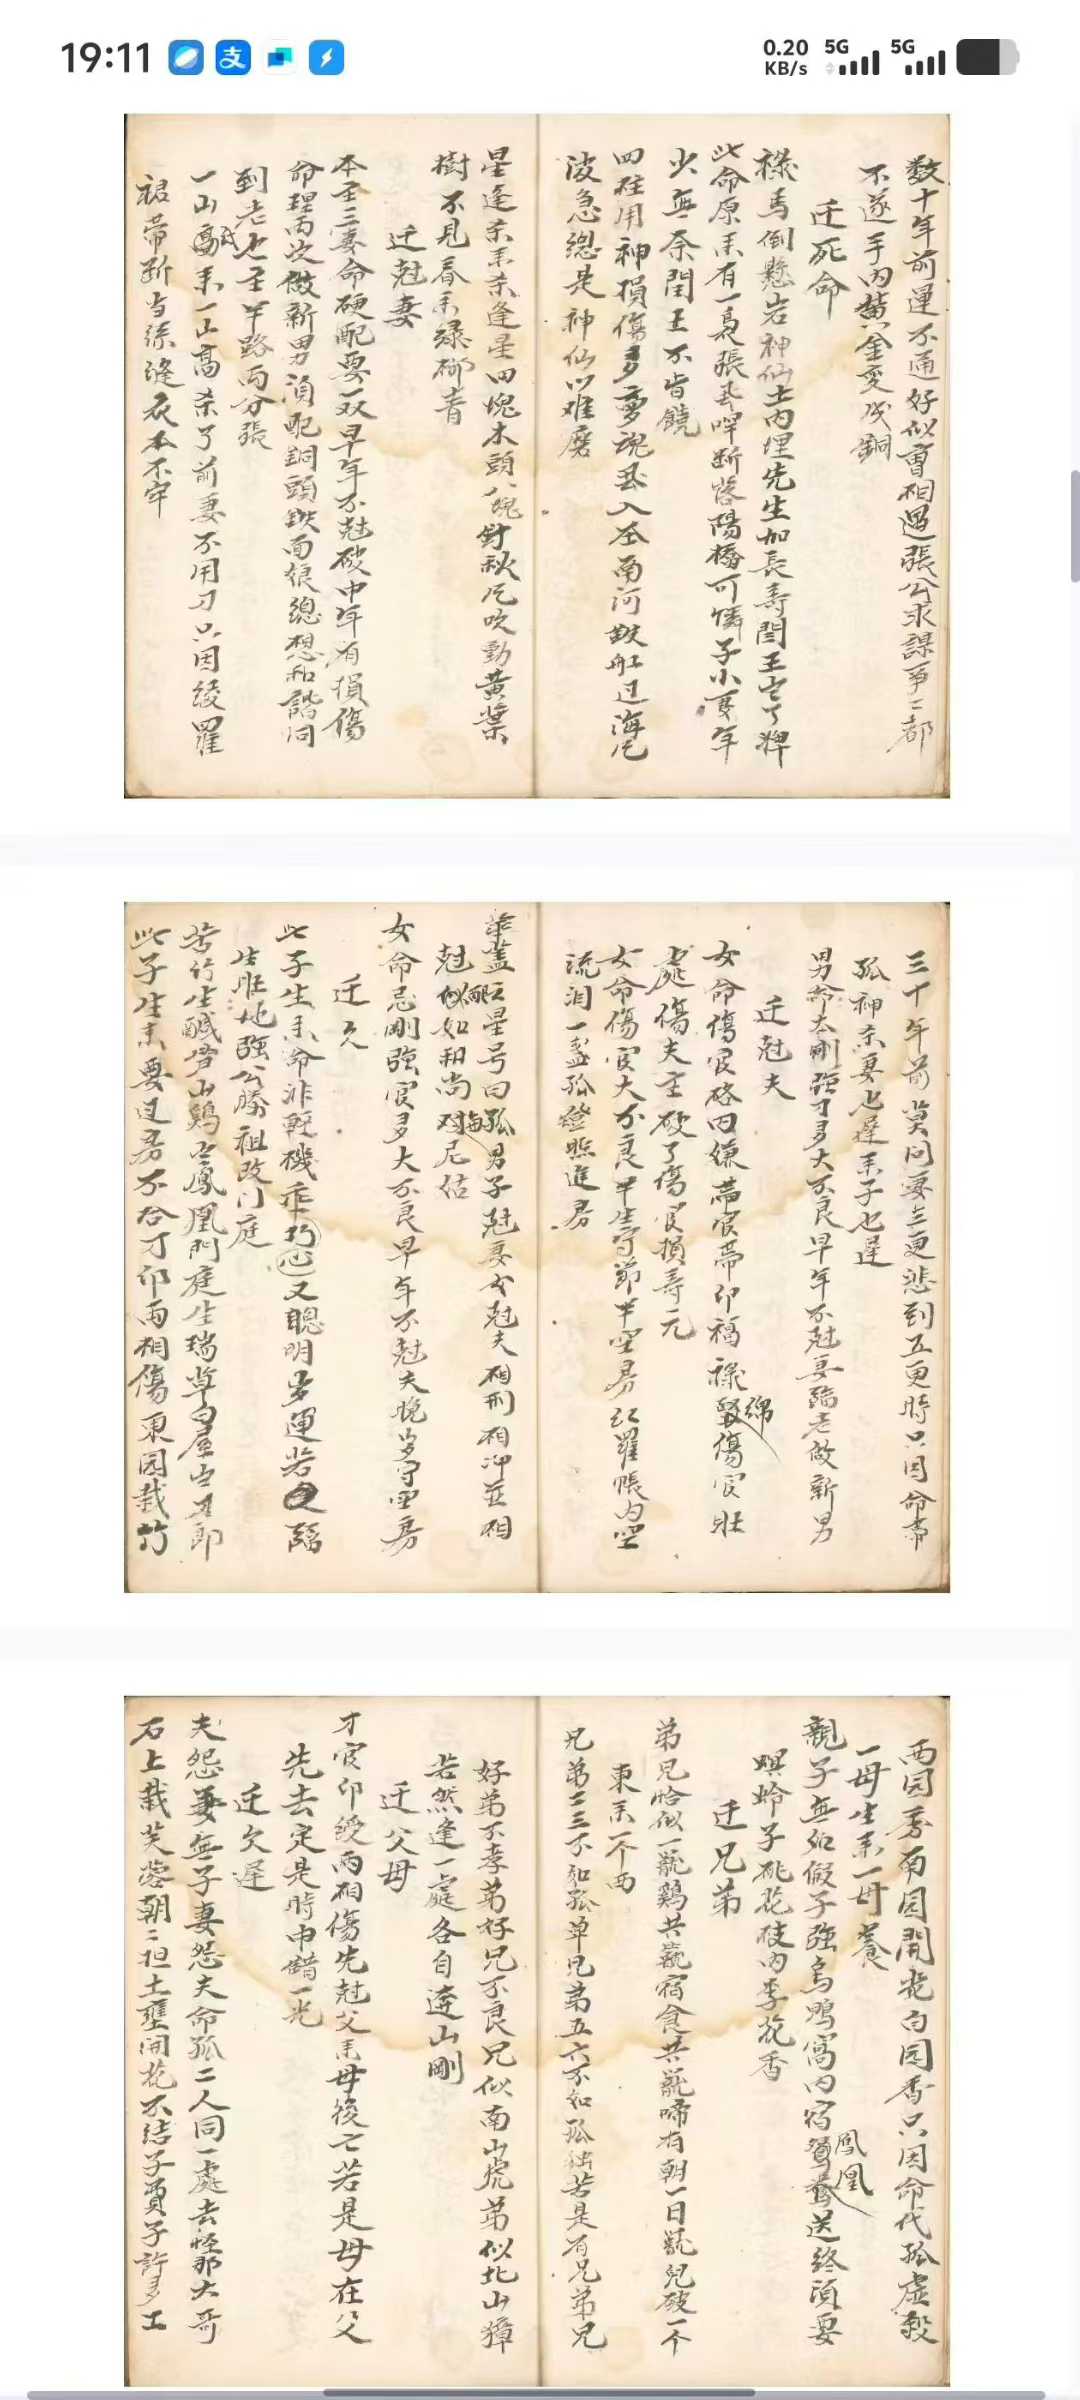 19:11
0.20 KB/s 5G 5G
数十年前運不通好似曹相遇張公求謀事二都
不遂手内黄金变成銅
迁死命
祿馬倒懸岩神仙土内埋先生加長壽閏王定了牌
此命原来有一裏張丢啐断洛陽橋可憐子小更年
火無奈閏王不肯饒
四柱用神損傷多夢魂丢入在南河皷舡过海
波急總是神仙以难磨
星逢杀来杀逢星四塊木頭八塊釘秋吹動黃葉
樹不見春来緑柳青
迁尅妻
本主三妻命硬配要双早年不尅破中年有損傷
命理两次做新男湏配銅頭鉄面狼總想和諧同
到老也主半路両分張
一山来一山高杀了前妻不用刀只因綾羅
裙帶断当綵縫衣本不牢
三十年前莫问妻三更悲到五更時只因命帶
孤神杀妻也遲来子也遲
男命太剛強才多大不良早年不尅妻臨老做新男
迁尅夫
女命傷官格内嫌帶官帶印福祿綿傷官旺
處傷夫主破了傷官損寿元
女命傷官大不良半生守節半空房红羅帳内空
流淚一盞孤燈照進房
華盖星号曰孤男子尅妻女尅夫相刑相冲並相
尅如和尚对尼姑
女命忌剛強官多大不良早年不尅夫晚岁守空房
迁欠
此子生来命非軽機乖巧心又聰明岁運若臨
生旺地強公勝祖改门庭
苦竹生鹹笋山鷄出鳳凰門庭生瑞草白屋出才郎
此子生来要过房不合才印両相傷東园栽竹
西园秀南园開花白园香只因命代孤虚殺
一母生来一母養
親子無如假子強烏鴉窩内宿鳳凰送终湏要
螟蛉子桃花枝内李花香
迁兄弟
弟兄恰似一籠鷄共籠宿食共籠啼有朝一日籠兒破一个
東来一个西
兄弟二三不如孤单兄弟五六不如孤独若是有兄弟兄
好弟不孝弟好兄不良兄似南山虎弟似北山獐
若然逢一處各自逹山剛
迁父母
才官印綬両相傷先尅父来母後亡若是母在父
先去定是時申錯一光
迁欠遲
夫怨妻無子妻怨夫命孤二人同一處去怪那大哥
石上栽芙蓉朝二担土壅開花不结子賈子許多工